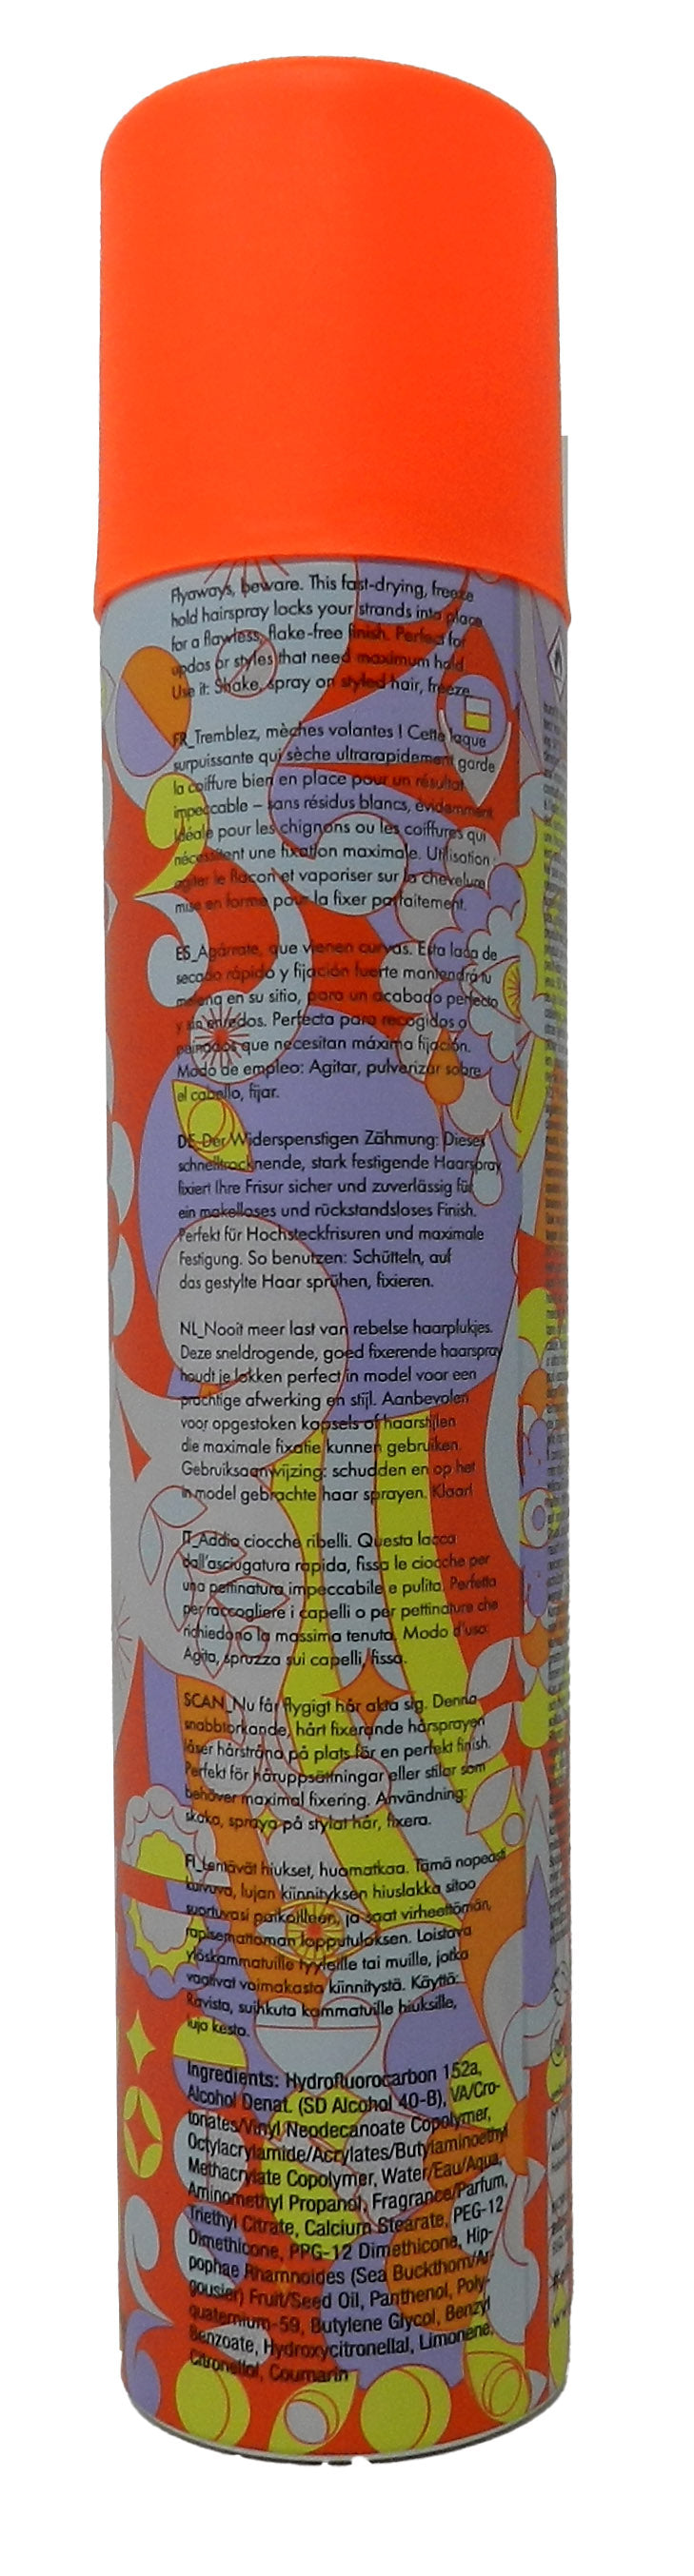 Flyaways, beware. This fast-drying, freeze
hold hairspray locks your strands into place
for a flawless, flake-free finish. Perfect for
updos or styles that need maximum hold.
Use it: Shake, spray on styled hair, freeze.
FR_Tremblez, mèches volantes ! Cette laque
surpuissante qui sèche ultrarapidement garde
la coiffure bien en place pour un résultat
impeccable – sans résidus blancs, évidemment.
Idéale pour les chignons ou les coiffures qui
nécessitent une fixation maximale. Utilisation :
agiter le flacon et vaporiser sur la chevelure
mise en forme pour la fixer parfaitement.
ES_Agárrate, que vienen curvas. Esta laca de
secado rápido y fijación fuerte mantendrá tu
melena en su sitio, para un acabado perfecto
y sin enredos. Perfecta para recogidos o
peinados que necesitan máxima fijación.
Modo de empleo: Agitar, pulverizar sobre
el cabello, fijar.
DE_Der Widerspenstigen Zähmung: Dieses
schnelltrocknende, stark festigende Haarspray
fixiert Ihre Frisur sicher und zuverlässig für
ein makelloses und rückstandsloses Finish.
Perfekt für Hochsteckfrisuren und maximale
Festigung. So benutzen: Schütteln, auf
das gestylte Haar sprühen, fixieren.
NL_Nooit meer last van rebelse haarplukjes.
Deze sneldrogende, goed fixerende haarspray
houdt je lokken perfect in model voor een
prachtige afwerking en stijl. Aanbevolen
voor opgestoken kapsels of haarstijlen
die maximale fixatie kunnen gebruiken.
Gebruiksaanwijzing: schudden en op het
in model gebrachte haar sprayen. Klaar!
IT_Addio ciocche ribelli. Questa lacca
dall'asciugatura rapida, fissa le ciocche per
una pettinatura impeccabile e pulita. Perfetta
per raccogliere i capelli o per pettinature che
richiedono la massima tenuta. Modo d'uso:
Agita, spruzza sui capelli, fissa.
SCAN_Nu får flygigt hår akta sig. Denna
snabbtorkande, hårt fixerande hårsprayen
låser hårstråna på plats för en perfekt finish.
Perfekt för håruppsättningar eller stilar som
behöver maximal fixering. Användning:
skaka, spraya på stylat hår, fixera.
FI_Lentävät hiukset, huomatkaa. Tämä nopeasti
kuivuva, lujan kiinnityksen hiuslakka sitoo
suortuvasi paikoilleen, ja saat virheettömän,
rapisemattoman lopputuloksen. Loistava
ylöskammatuille tyyleille tai muille, jotka
vaativat voimakasta kiinnitystä. Käyttö:
Ravista, suihkuta kammatuille hiuksille,
luja kesto.
Ingredients: Hydrofluorocarbon 152a,
Alcohol Denat. (SD Alcohol 40-B), VA/Cro-
tonates/Vinyl Neodecanoate Copolymer,
Octylacrylamide/Acrylates/Butylaminoethyl
Methacrylate Copolymer, Water/Eau/Aqua,
Aminomethyl Propanol, Fragrance/Parfum,
Triethyl Citrate, Calcium Stearate, PEG-12
Dimethicone, PPG-12 Dimethicone, Hip-
pophae Rhamnoides (Sea Buckthorn/Ar-
gousier) Fruit/Seed Oil, Panthenol, Poly-
quaternium-59, Butylene Glycol, Benzyl
Benzoate, Hydroxycitronellal, Limonene,
Citronellol, Coumarin